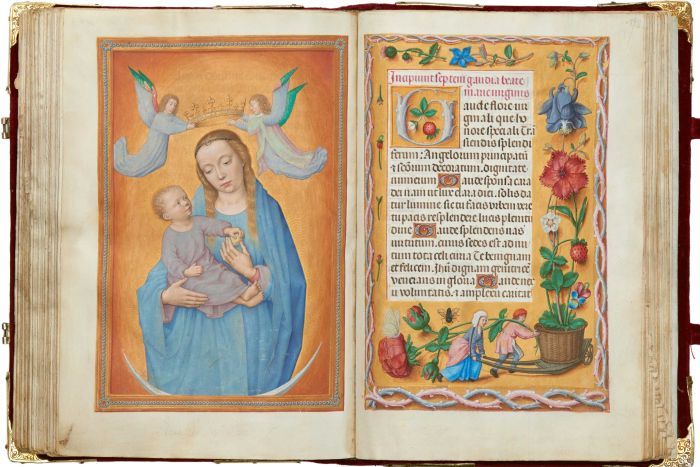 Incipiunt septem gaudia beate
marie virginis
Gaude flore vir
ginali que ho
nore speciali Trā
scendis splendi
ferum: Angelorum principatū
& scōrum decoratum, dignitate
numerum Gaude sponsa cara
dei nam ut lux clara diei, solis da
tur lumine sic tu facis orbem vere
tue pacis resplendere lucis plenitu
dine Gaude splendens vas
virtutum, cuius sedes est ad nu
tum tota celi curia Te benignam
et felicem Jhesū dignam genitricē
venerans in gloria Gaude ne
xu voluntatis, & amplexu caritat